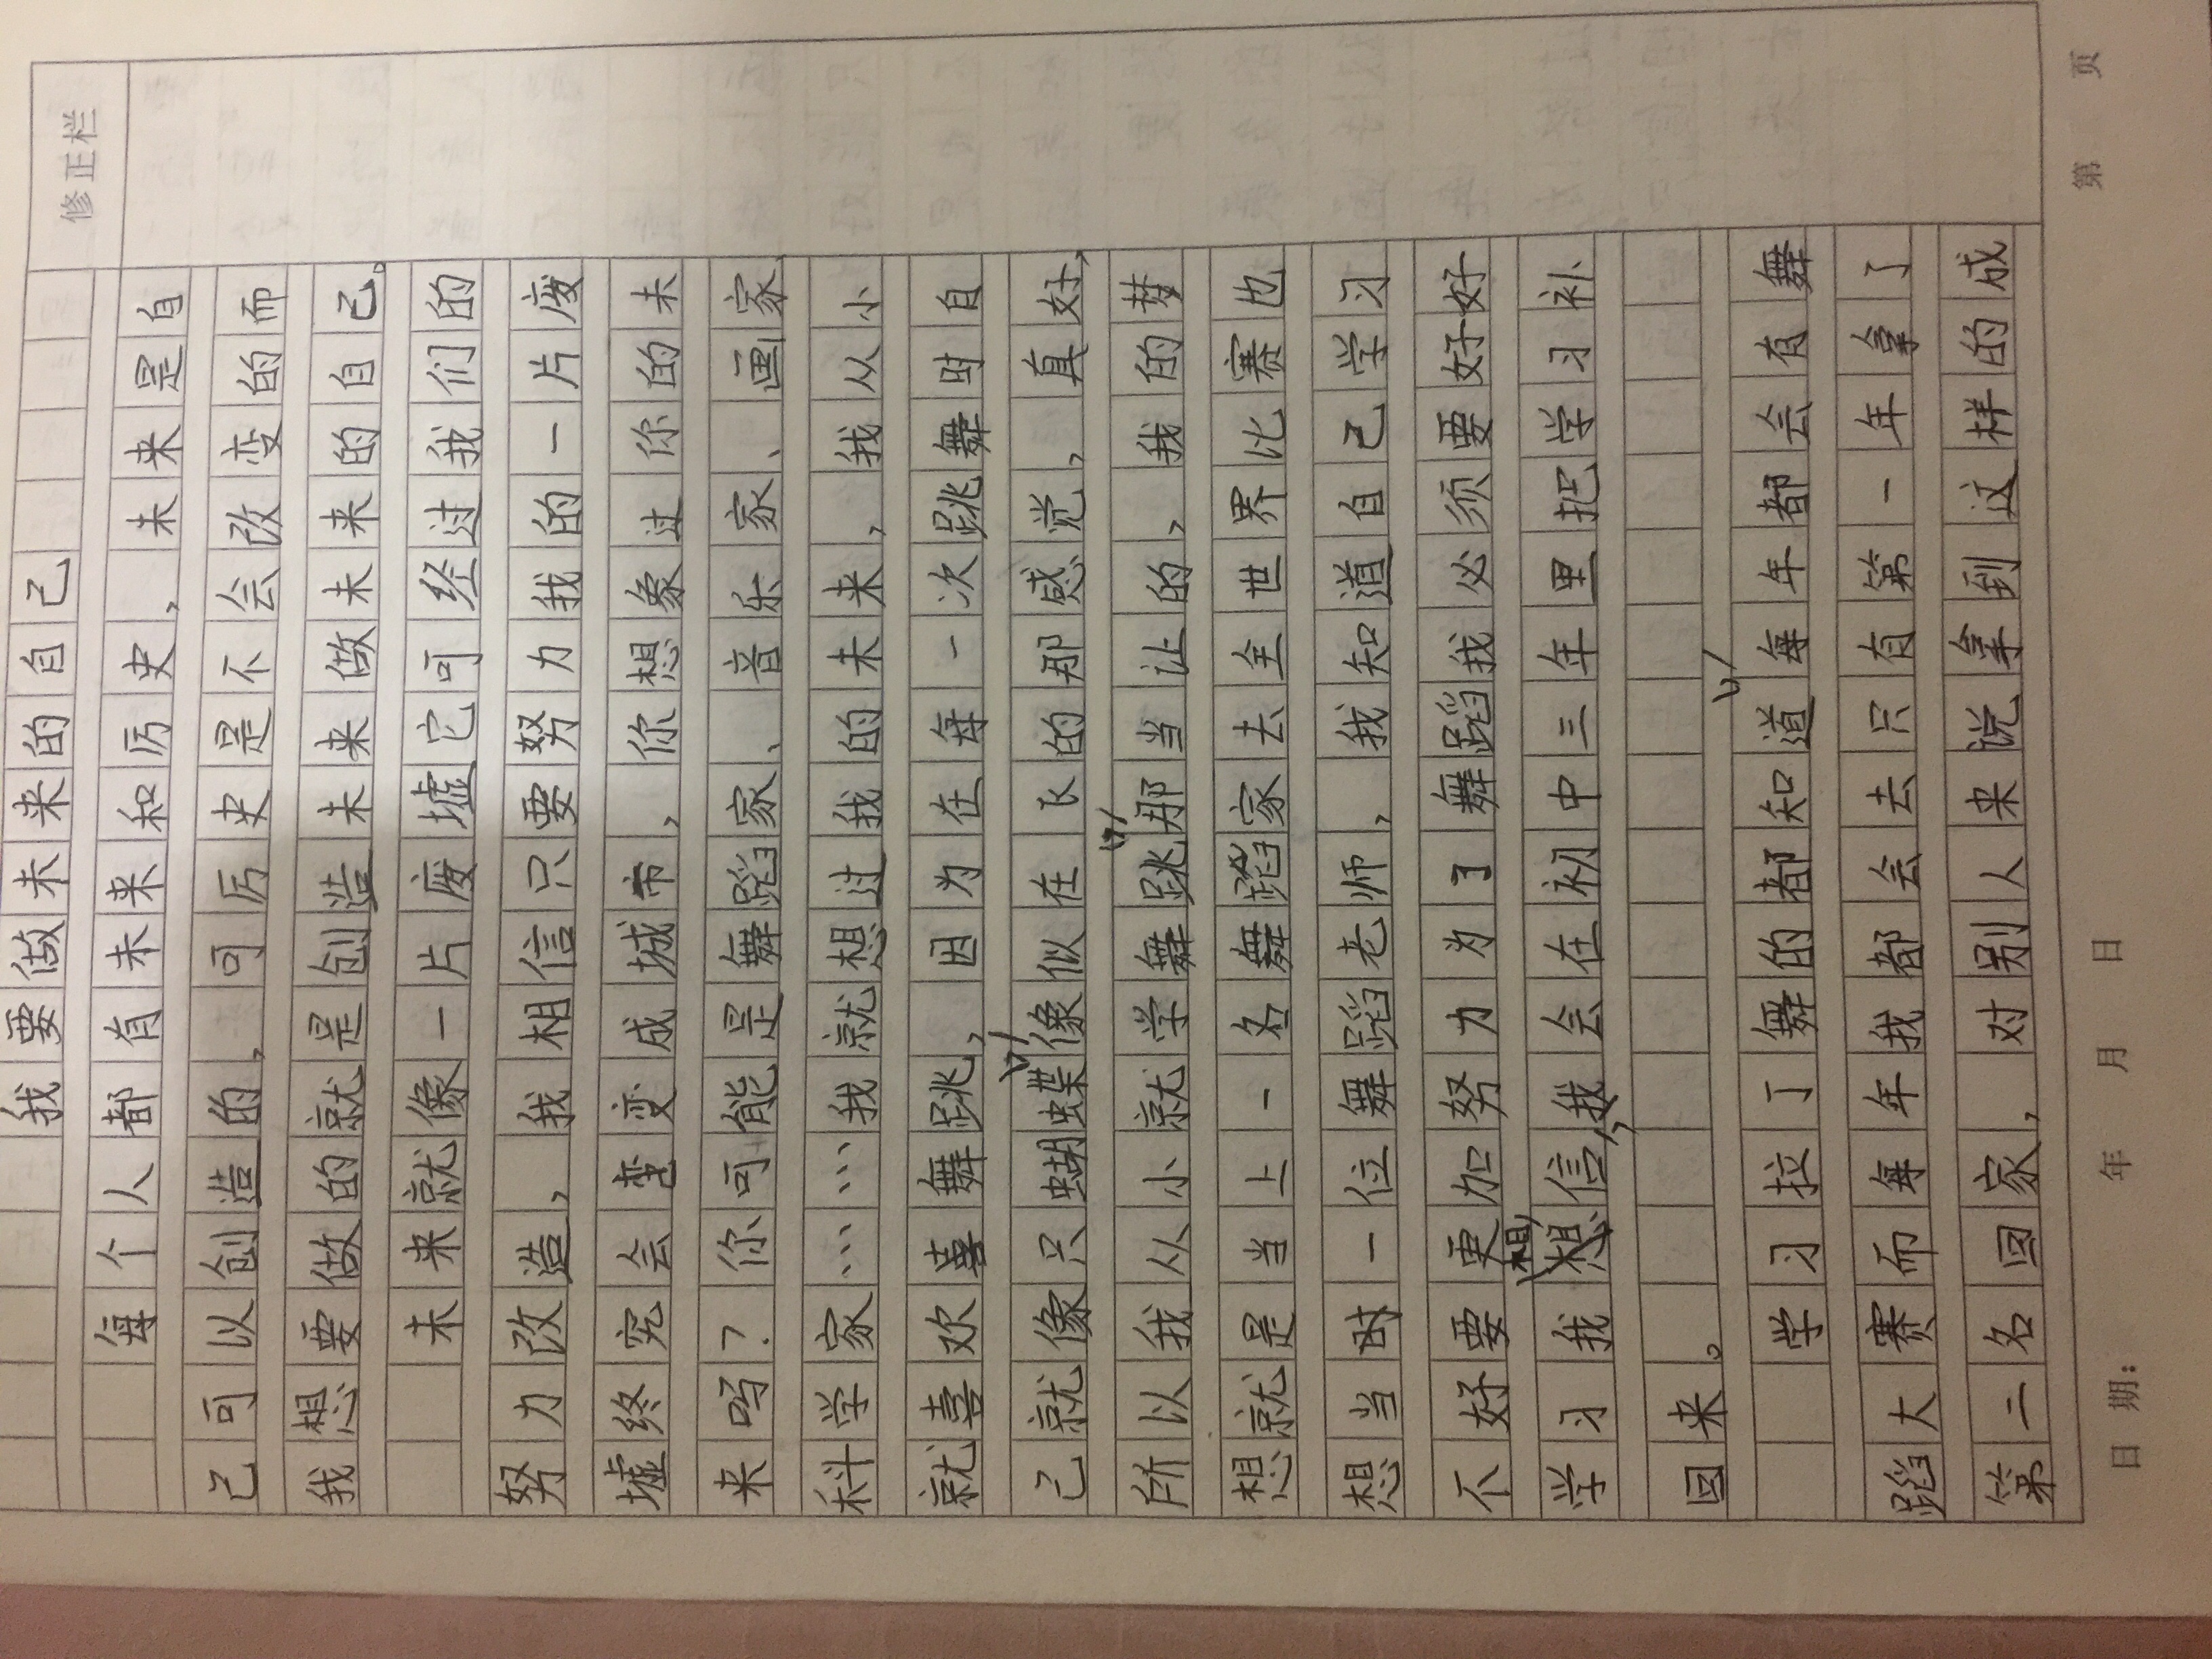 我要做未来的自己
修正栏
每个人都有未来和历史，未来是自
己可以创造的，可历史是不会改变的而
我想要做的就是创造未来做未来的自己。
未来就像一片废墟它可经过我们的
努力改造，我相信只要努力我的一片废
墟终究会变成城市，你想象过你的未
来吗？你可能是舞蹈家、音乐家、画家、
科学家……我就想过我的未来，我从小
就喜欢舞跳，因为在每一次跳舞时自
己就像只蝴蝶像似在飞的那感觉，真好，
所以我从小就学舞跳那当让的，我的梦
想就是当上一名舞蹈家去全世界比赛也
想当时一位舞蹈老师，我知道自己学习
不好要更加努力为了舞蹈我必须要好好
学习我相信，我会在初中三年里把学习补
回来。
学习拉丁舞的都知道每年都会有舞
蹈大赛而每年我都会去只有第一年拿了
第二名回家，对别人来说拿到这样的成
日期： 年 月 日 第 页